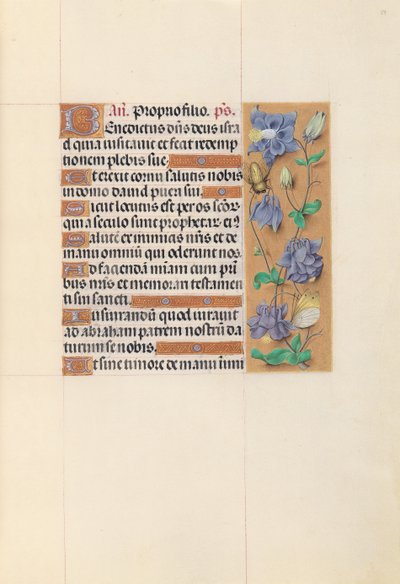 An̄. Proprio filio. ps̄.
Benedictus dn̄s deus isra
el quia visitavit et fecit redemp
tionem plebis sue.
Et erexit cornu salutis nobis
in domo david pueri sui.
Sicut locutus est per os sc̄or̄
qui a seculo sunt prophetar̄ ei9
Salutē ex inimicis nr̄is et de
manu omniū qui oderunt nos.
Ad faciendam miām cum patri
bus nr̄is et memorari testamen
ti sui sancti.
Iusiurandū quod iuravit
ad abraham patrem nostrū da
turum se nobis.
Ut sine timore de manu inimi